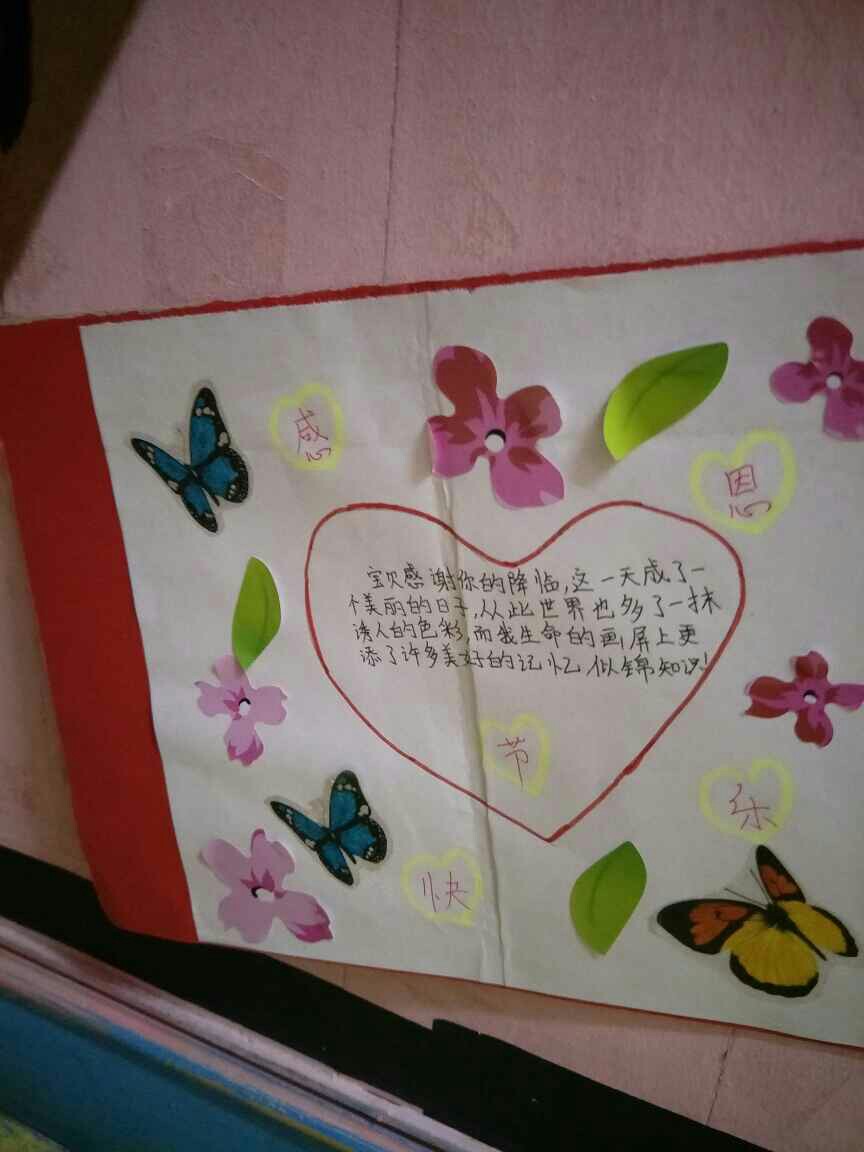 感
恩
宝贝感谢你的降临,这一天成了一
个美丽的日子,从此世界也多了一抹
诱人的色彩,而我生命的画屏上更
添了许多美好的记忆,似锦知识!
节
快
乐